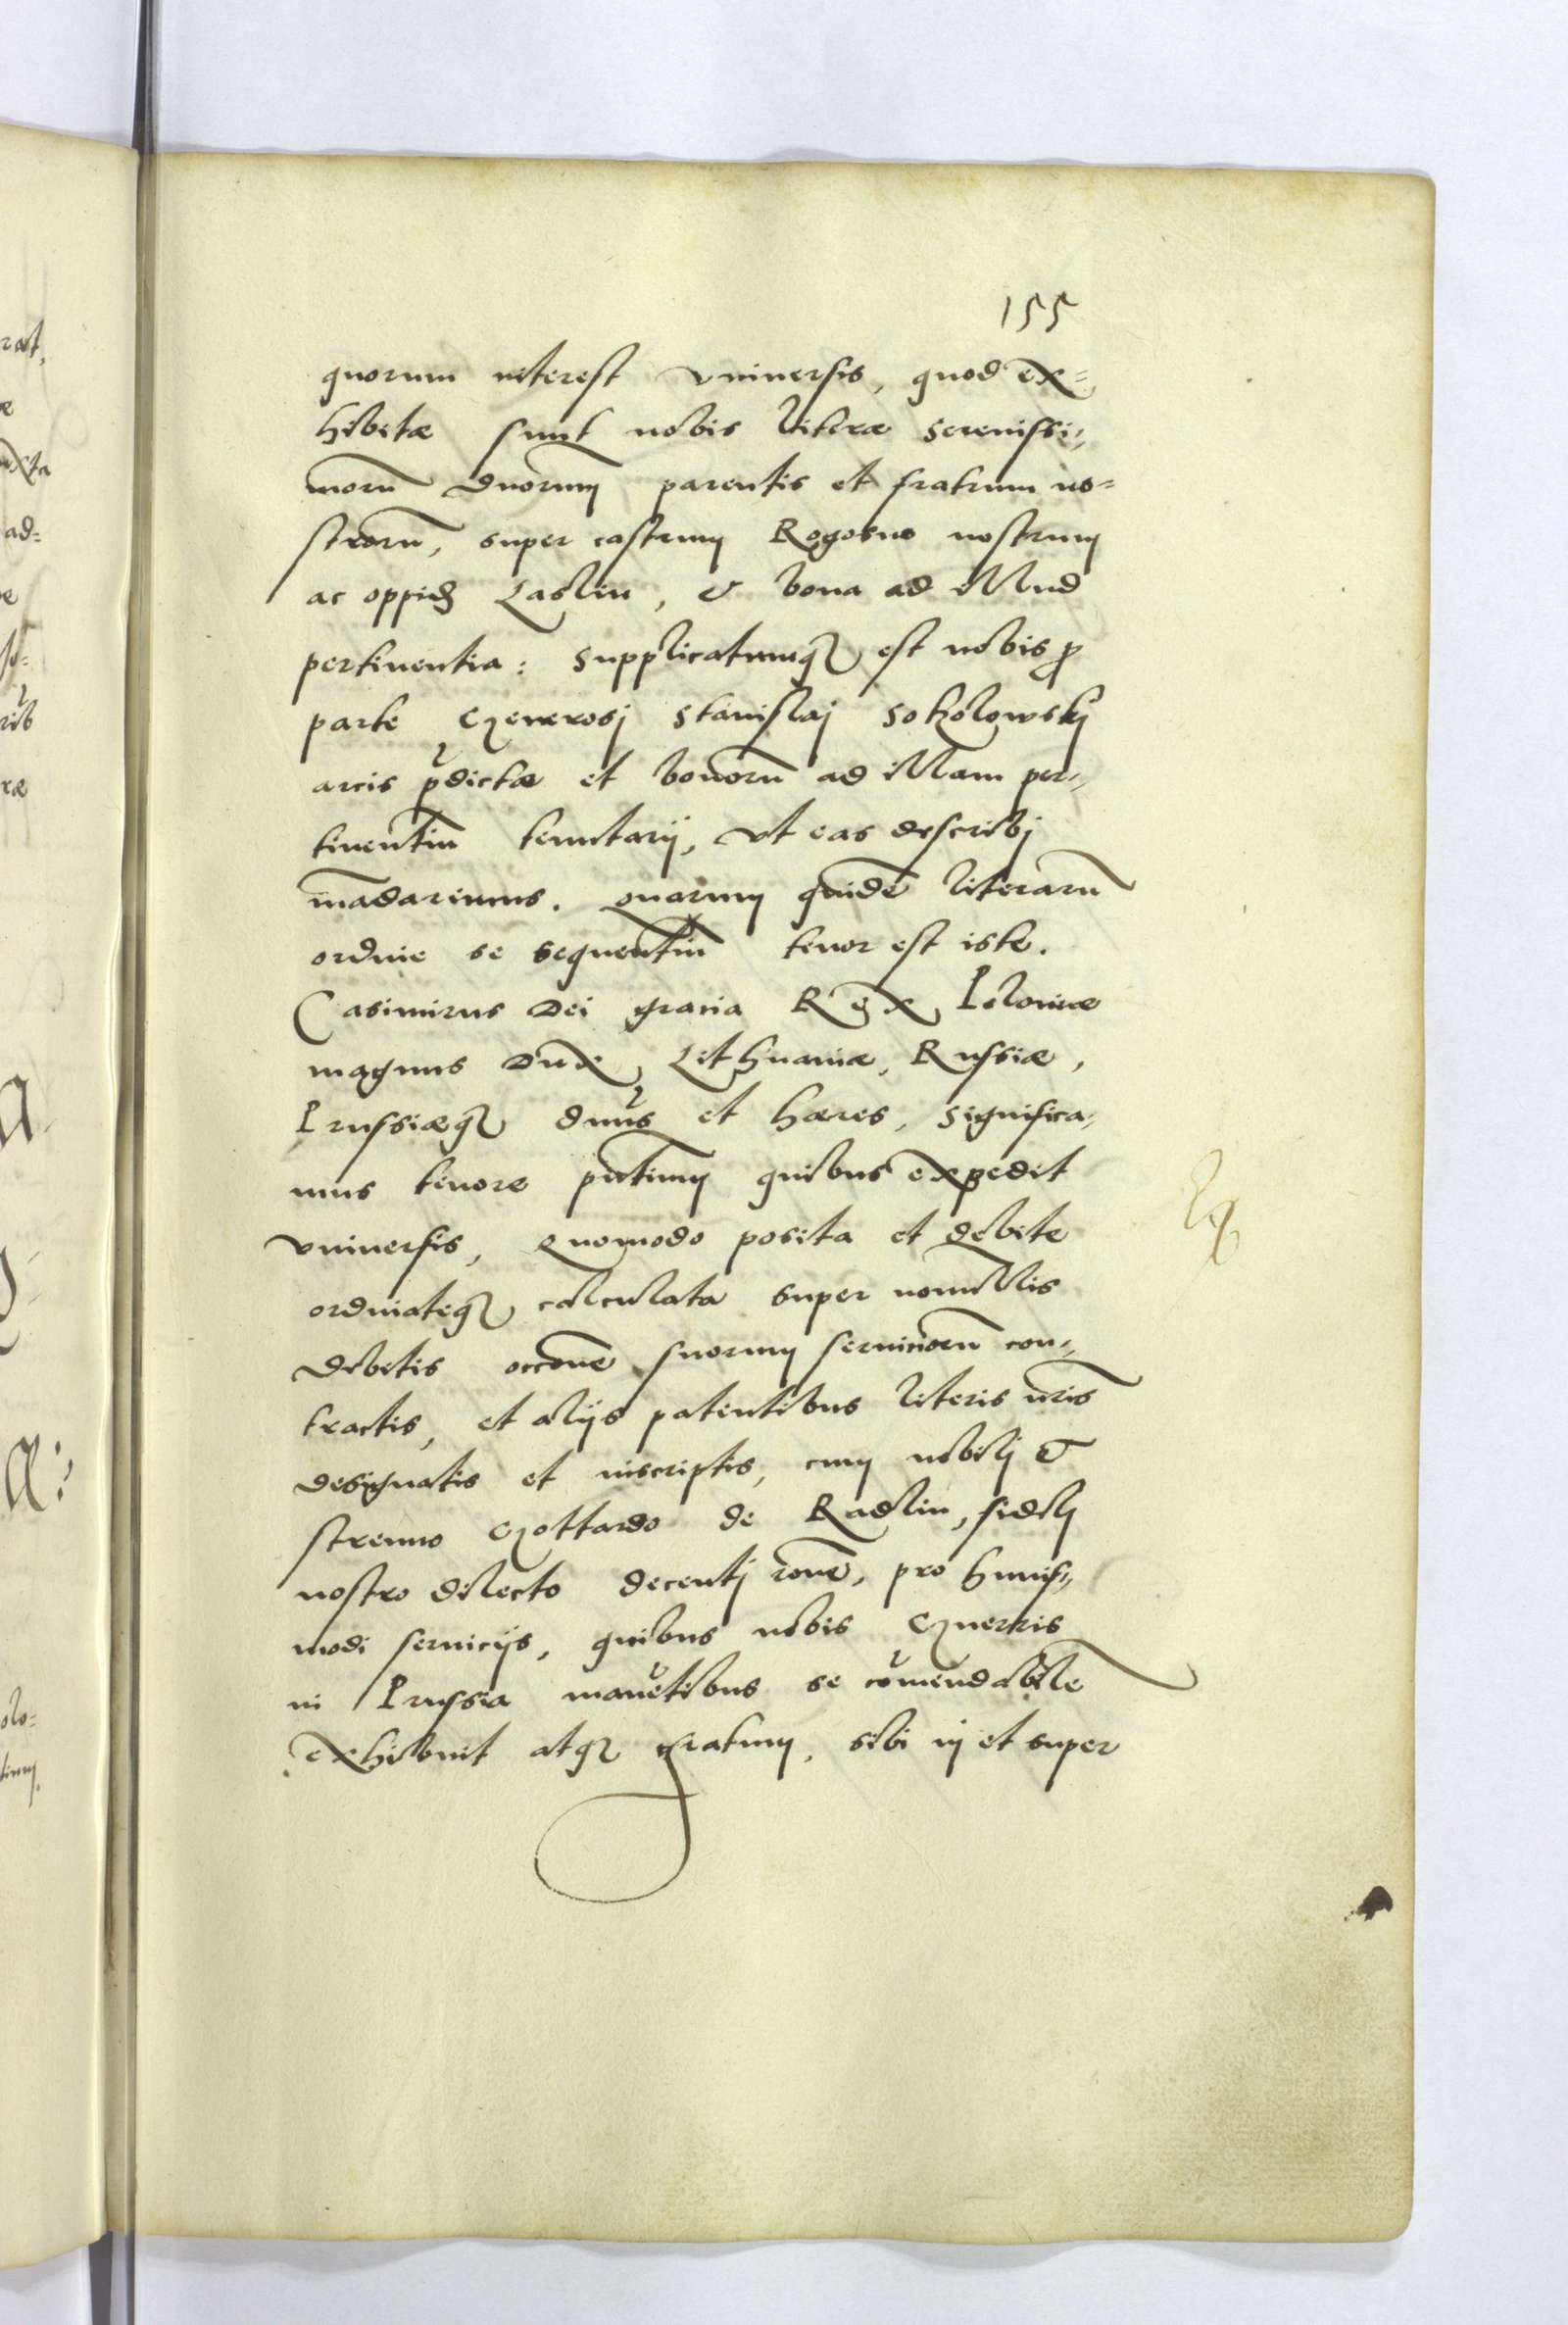 155
quorum interest vniuersis, quod ex=
hibitæ sunt nobis literæ serenissi,,
morũ dnorum parentis et fratrum no=
strorũ, super castrum Rogosno nostrum
ac oppid Laslin, & bona ad illud
pertinentia: Supplicatumq3 est nobis ꝓ
parte Generosj Stanislaj Sokolowskj
arcis p̃dictæ et bonorũ ad illam per,,
tinentiũ tenutarij, vt eas describj
mãdaremus. Quarum quidẽ literarũ
ordine se sequentiũ tenor est iste.
Casimirus Dei gracia Rex Poloniæ
magnus Dux Lithuaniæ, Russiæ,
Prussiæq3 dnũs et hæres, Significa,,
mus tenore pñtium quibus expedit
vniuersis, Quomodo posita et debite
ordinateq3 calculata super nonnullis
debitis occõne suorum seruiciorũ con,,
tractis, et alijs patentibus literis nr̃is
designatis et inscriptis, cum nobilj &
strenuo Gottardo de Radlin, fidelj
nostro dilecto decentj rõne, pro huius,,
modi seruicijs, quibus nobis Guerris
in Prussia mauẽtibus se cõmendabile
exhibuit atq3 gratum, sibi in et super